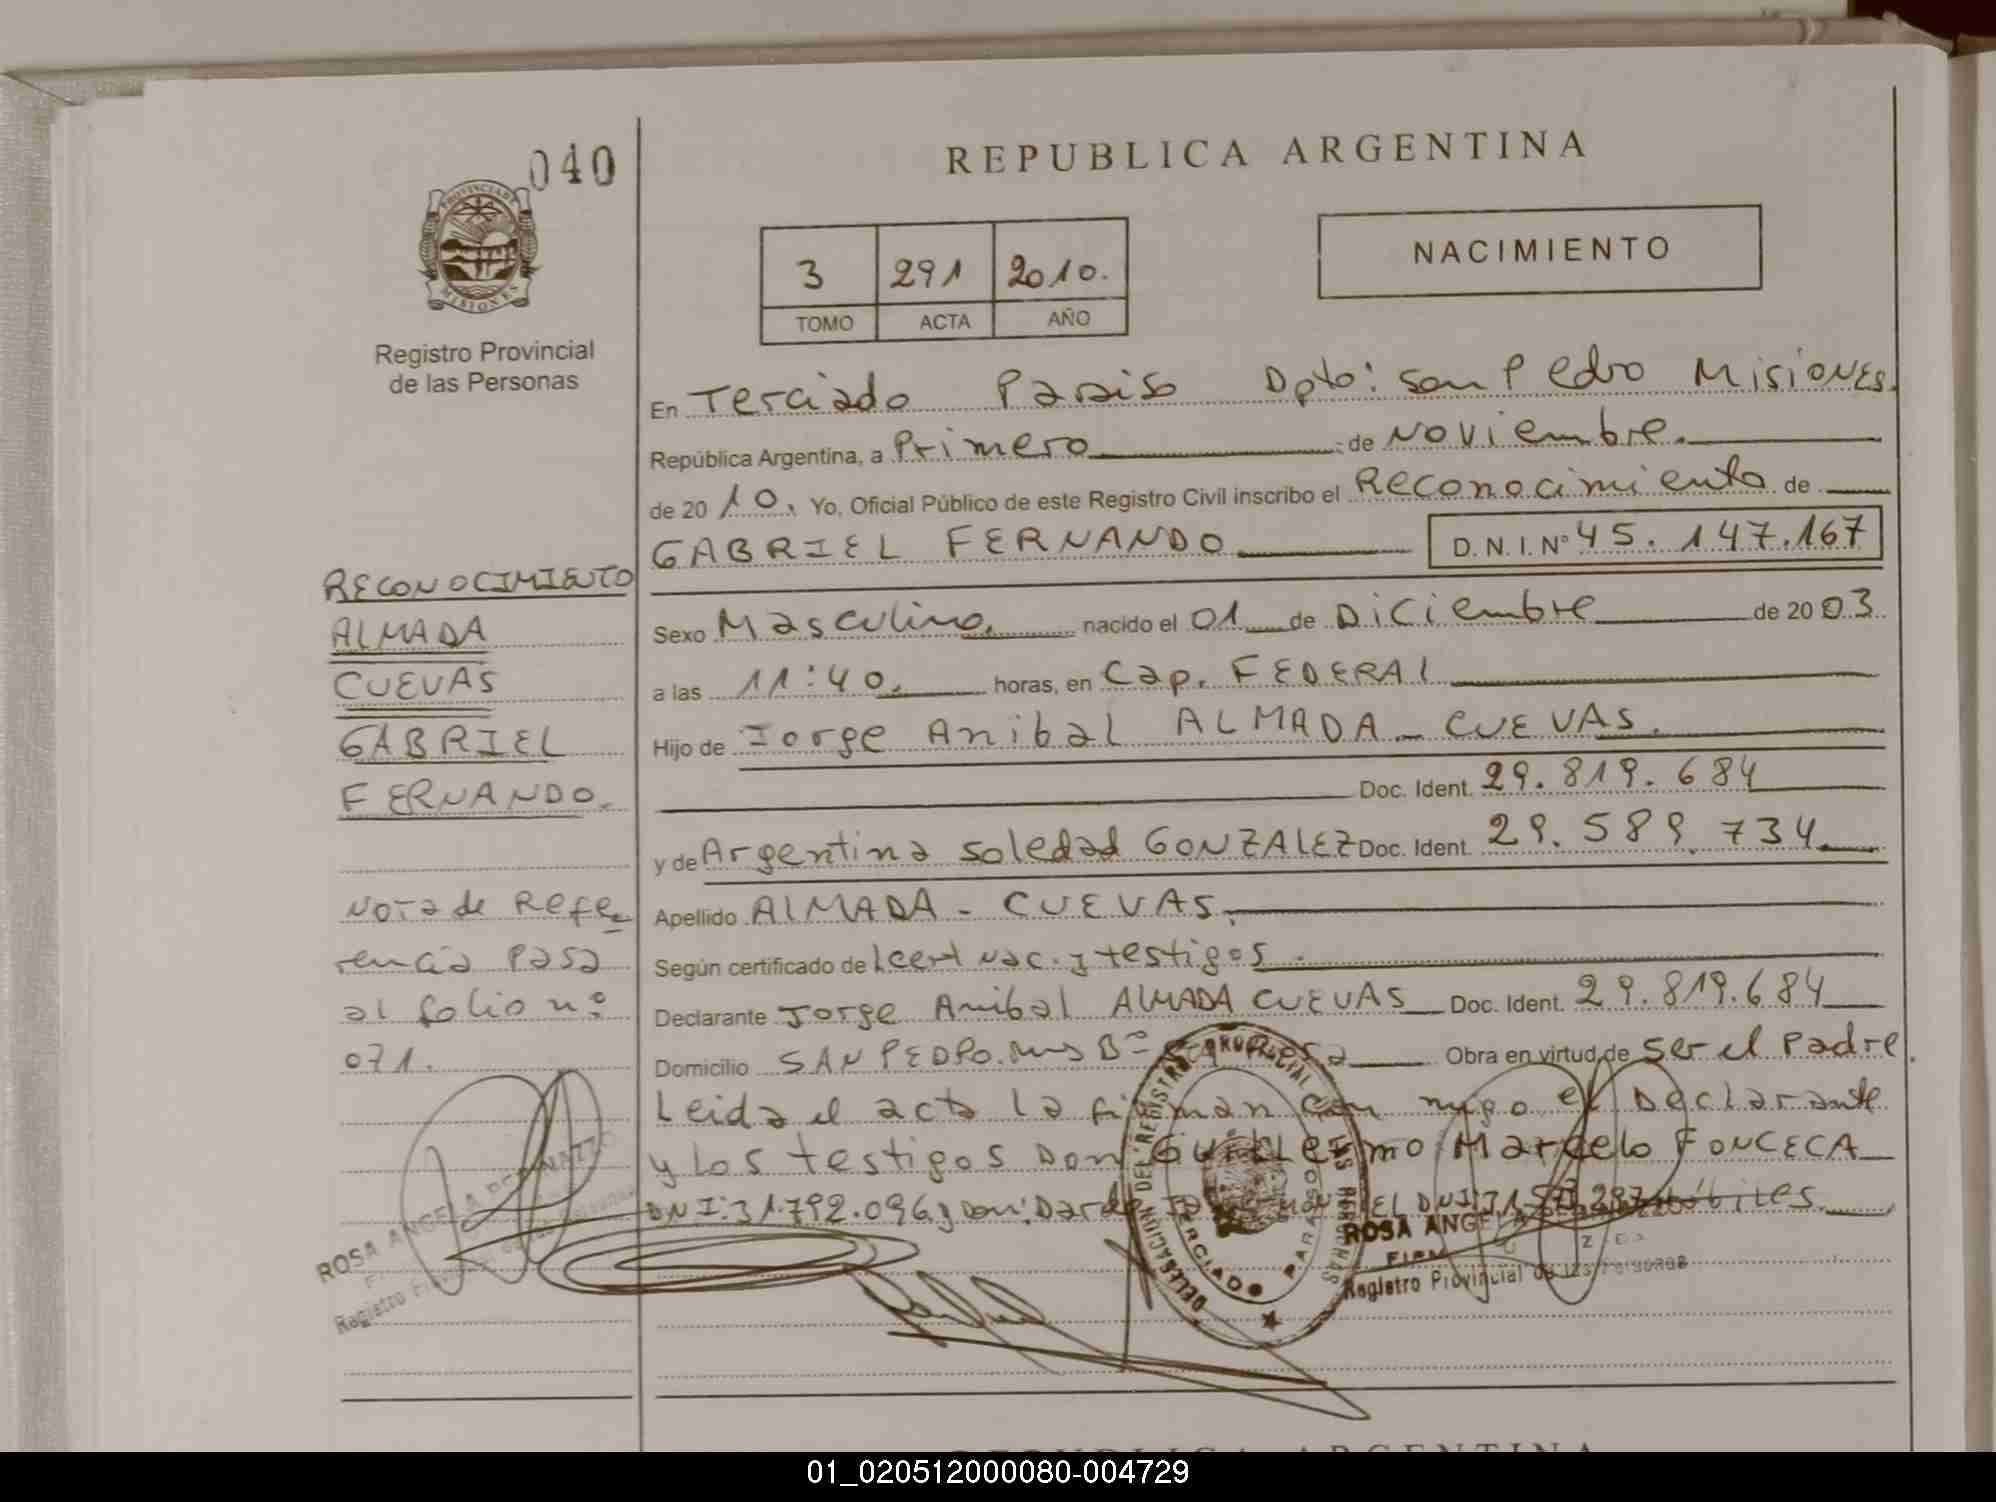 040
PROVINCIA DE
MISIONES
Registro Provincial
de las Personas
REPUBLICA ARGENTINA
3 291 2010.
TOMO ACTA AÑO
NACIMIENTO
En Terciado Paraiso Dpto: San Pedro Misiones.
República Argentina, a Primero de Noviembre.
de 2010. Yo, Oficial Público de este Registro Civil inscribo el Reconocimiento de
GABRIEL FERNANDO D.N.I. Nº 45.147.167
Sexo Masculino. nacido el 01 de Diciembre de 2003
a las 11:40. horas, en Cap. FEDERAL
Hijo de Jorge Anibal ALMADA - CUEVAS.
Doc. Ident. 29.819.684
y de Argentina Soledad GONZALEZ Doc. Ident. 29.589.734
Apellido ALMADA - CUEVAS.
Según certificado de cert nac. y testigos.
Declarante Jorge Anibal ALMADA CUEVAS Doc. Ident. 29.819.684
Domicilio SAN PEDRO. Mns Bº Obra en virtud de ser el Padre.
Leida el acta la firman con migo el Declarante
y los testigos Don Guillermo Marcelo FONCECA
DNI: 31.792.096 y Don: DNI: hábiles.
RECONOCIMIENTO
ALMADA
CUEVAS
GABRIEL
FERNANDO.
Nota de Refe-
rencia Pasa
al folio nº
071.
ROSA ANGELA
Registro
DELEGACION DEL REGISTRO PROVINCIAL DE LAS PERSONAS
TERCIADO PARAISO
ROSA ANGELA
Registro Provincial de las Personas
REPUBLICA ARGENTINA
01_020512000080-004729